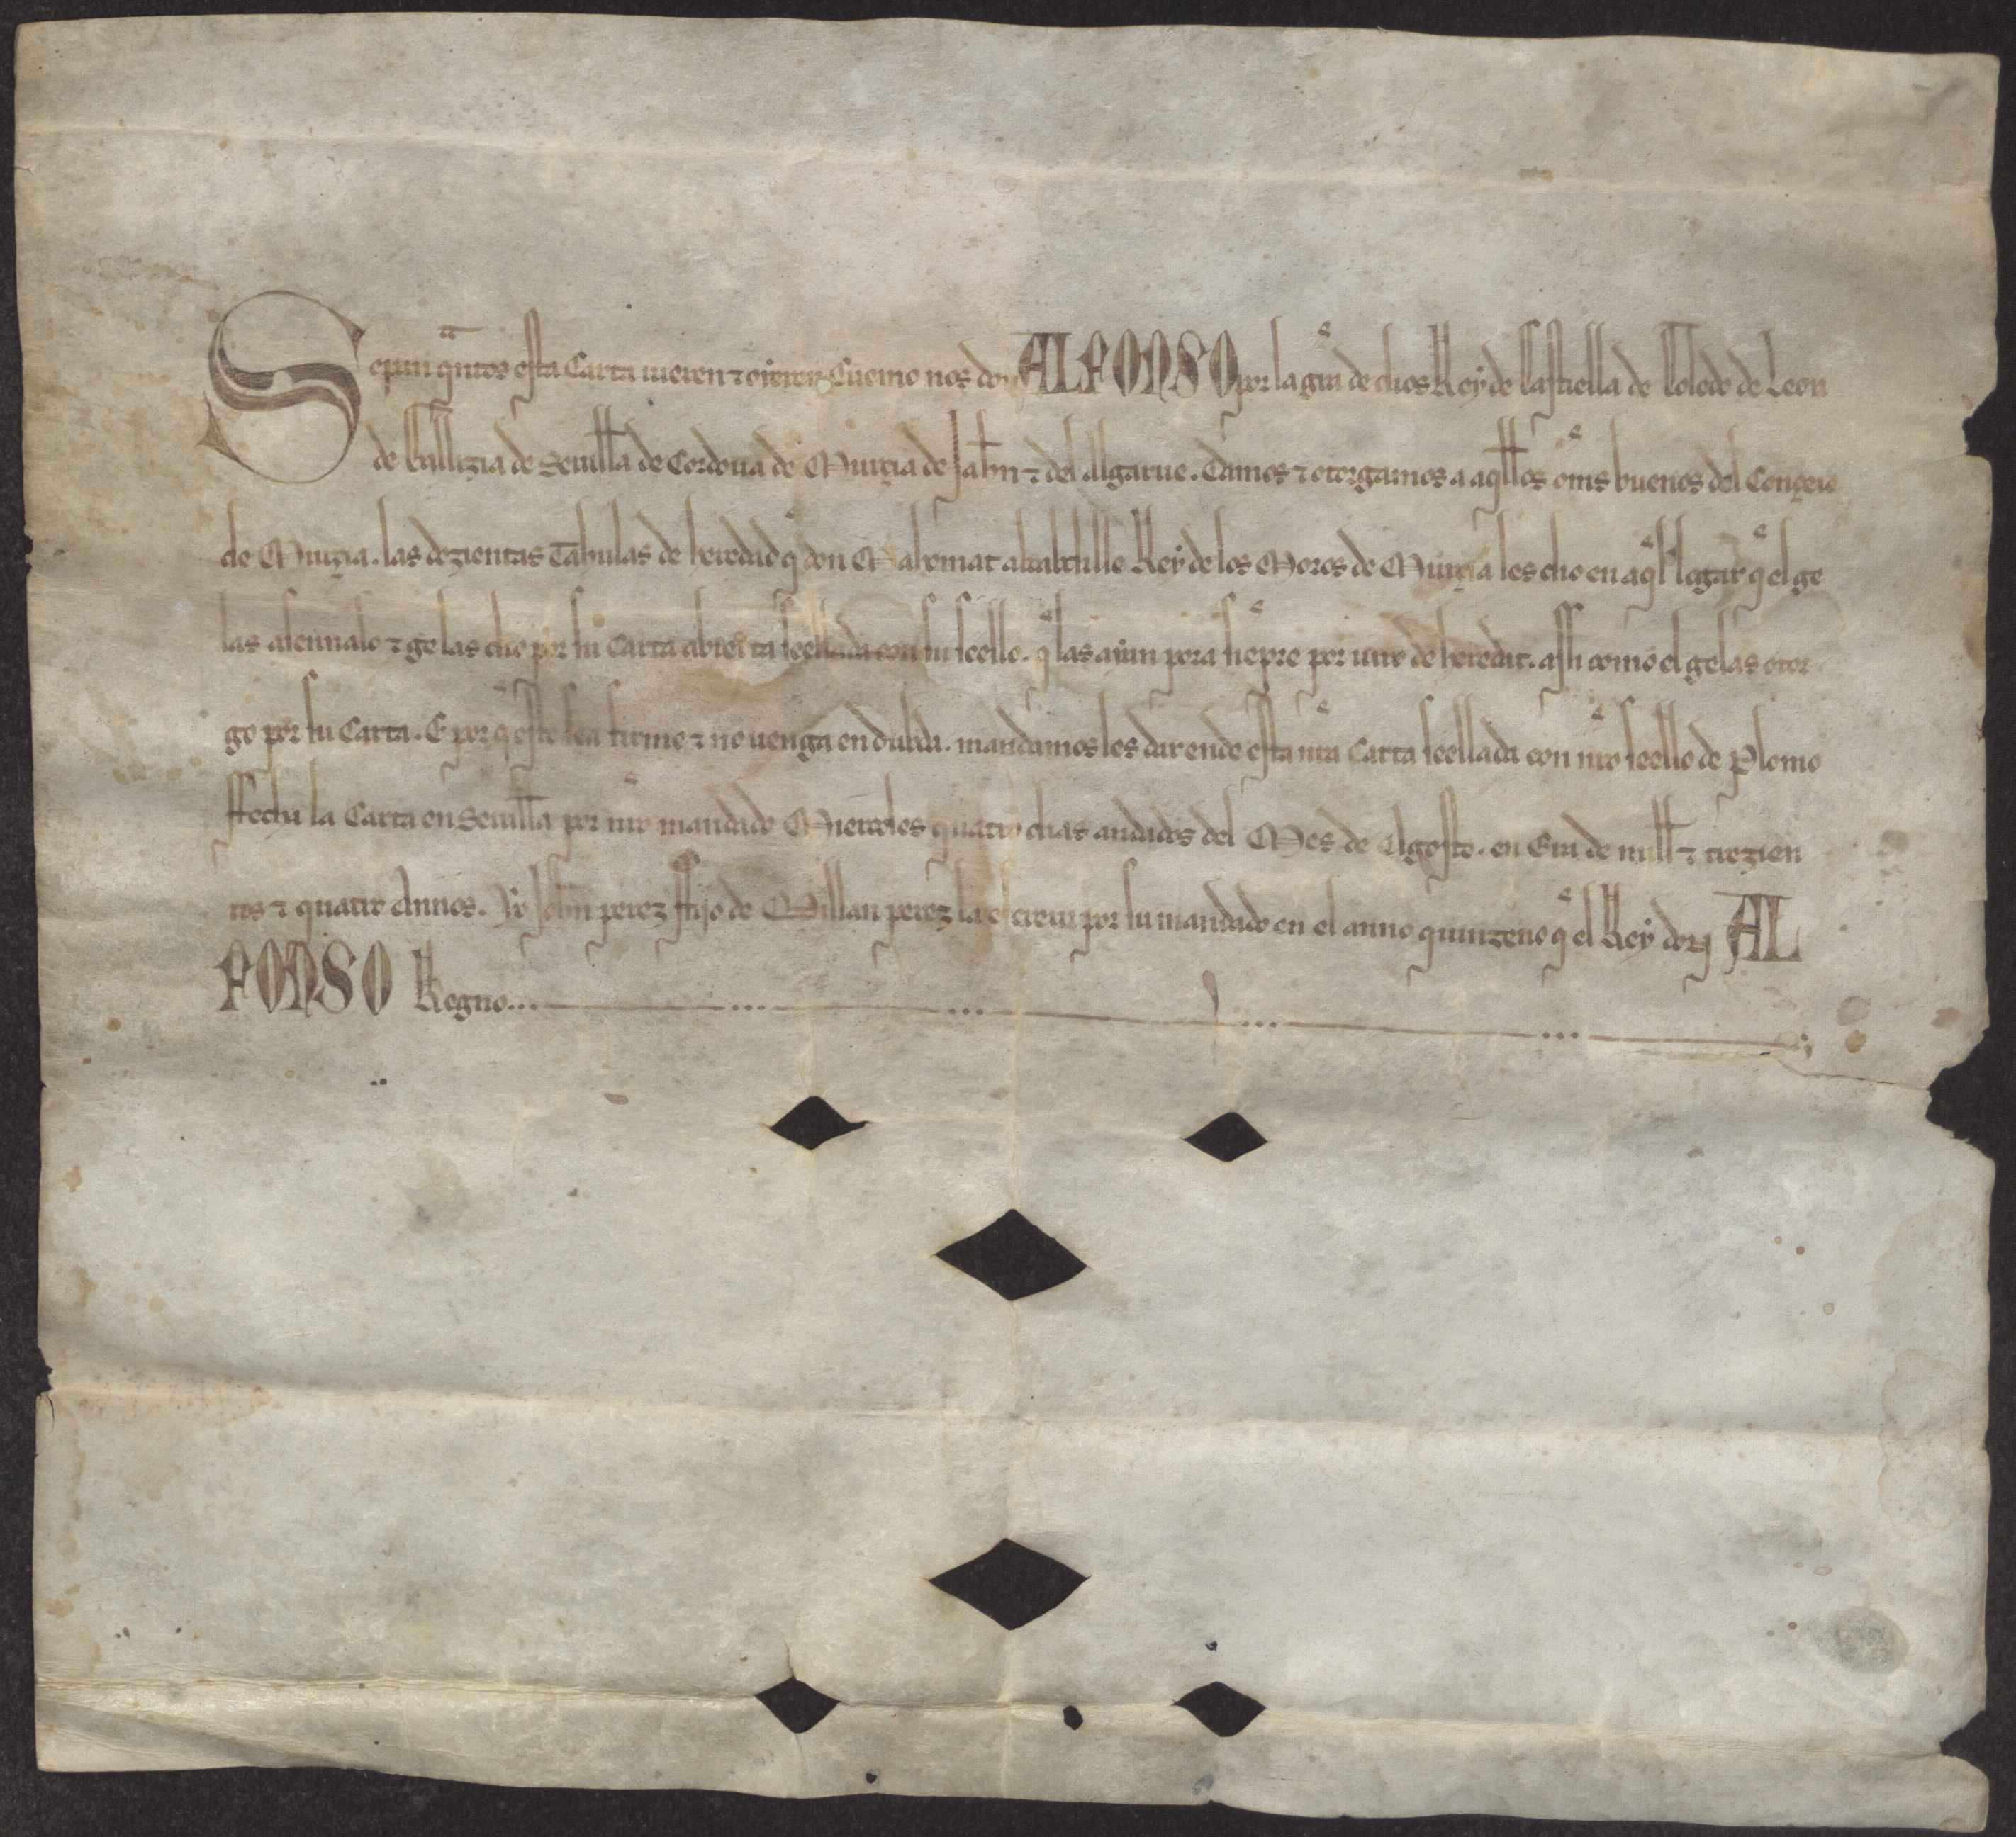 Sepan qntos esta Carta uieren ⁊ oyeren Cuemo nos don ALFONSO por la gra de dios Rey de Castiella de Toledo de Leon
de Gallizia de Seuilla de Cordoua de Murçia de Jahn ⁊ del Algarue. Damos ⁊ otorgamos a aqllos oms buenos del Conçeio
de Murçia. las dozientas Tabulas de heredad q don Mahomat Rey de los Moros de Murçia les dio en aql logar q el ge
las asennalo ⁊ ge las dio por su Carta abierta seellada con su seello. q las ayan pora siepre por iuro de heredat. assi como el gelas otor
go por su Carta. E por q esto sea firme ⁊ no uenga en dubda. mandamos les dar ende esta nra Carta seellada con nro seello de Plomo
ffecha la Carta en Seuilla por nro mandado Miercoles quatro dias andados del Mes de Agosto. en Era de mill ⁊ trezien
tos ⁊ quatro Annos. Yo Johan perez ffijo de Millan perez la escreui por su mandado en el anno quinzeno q el Rey don AL
FONSO Regno...